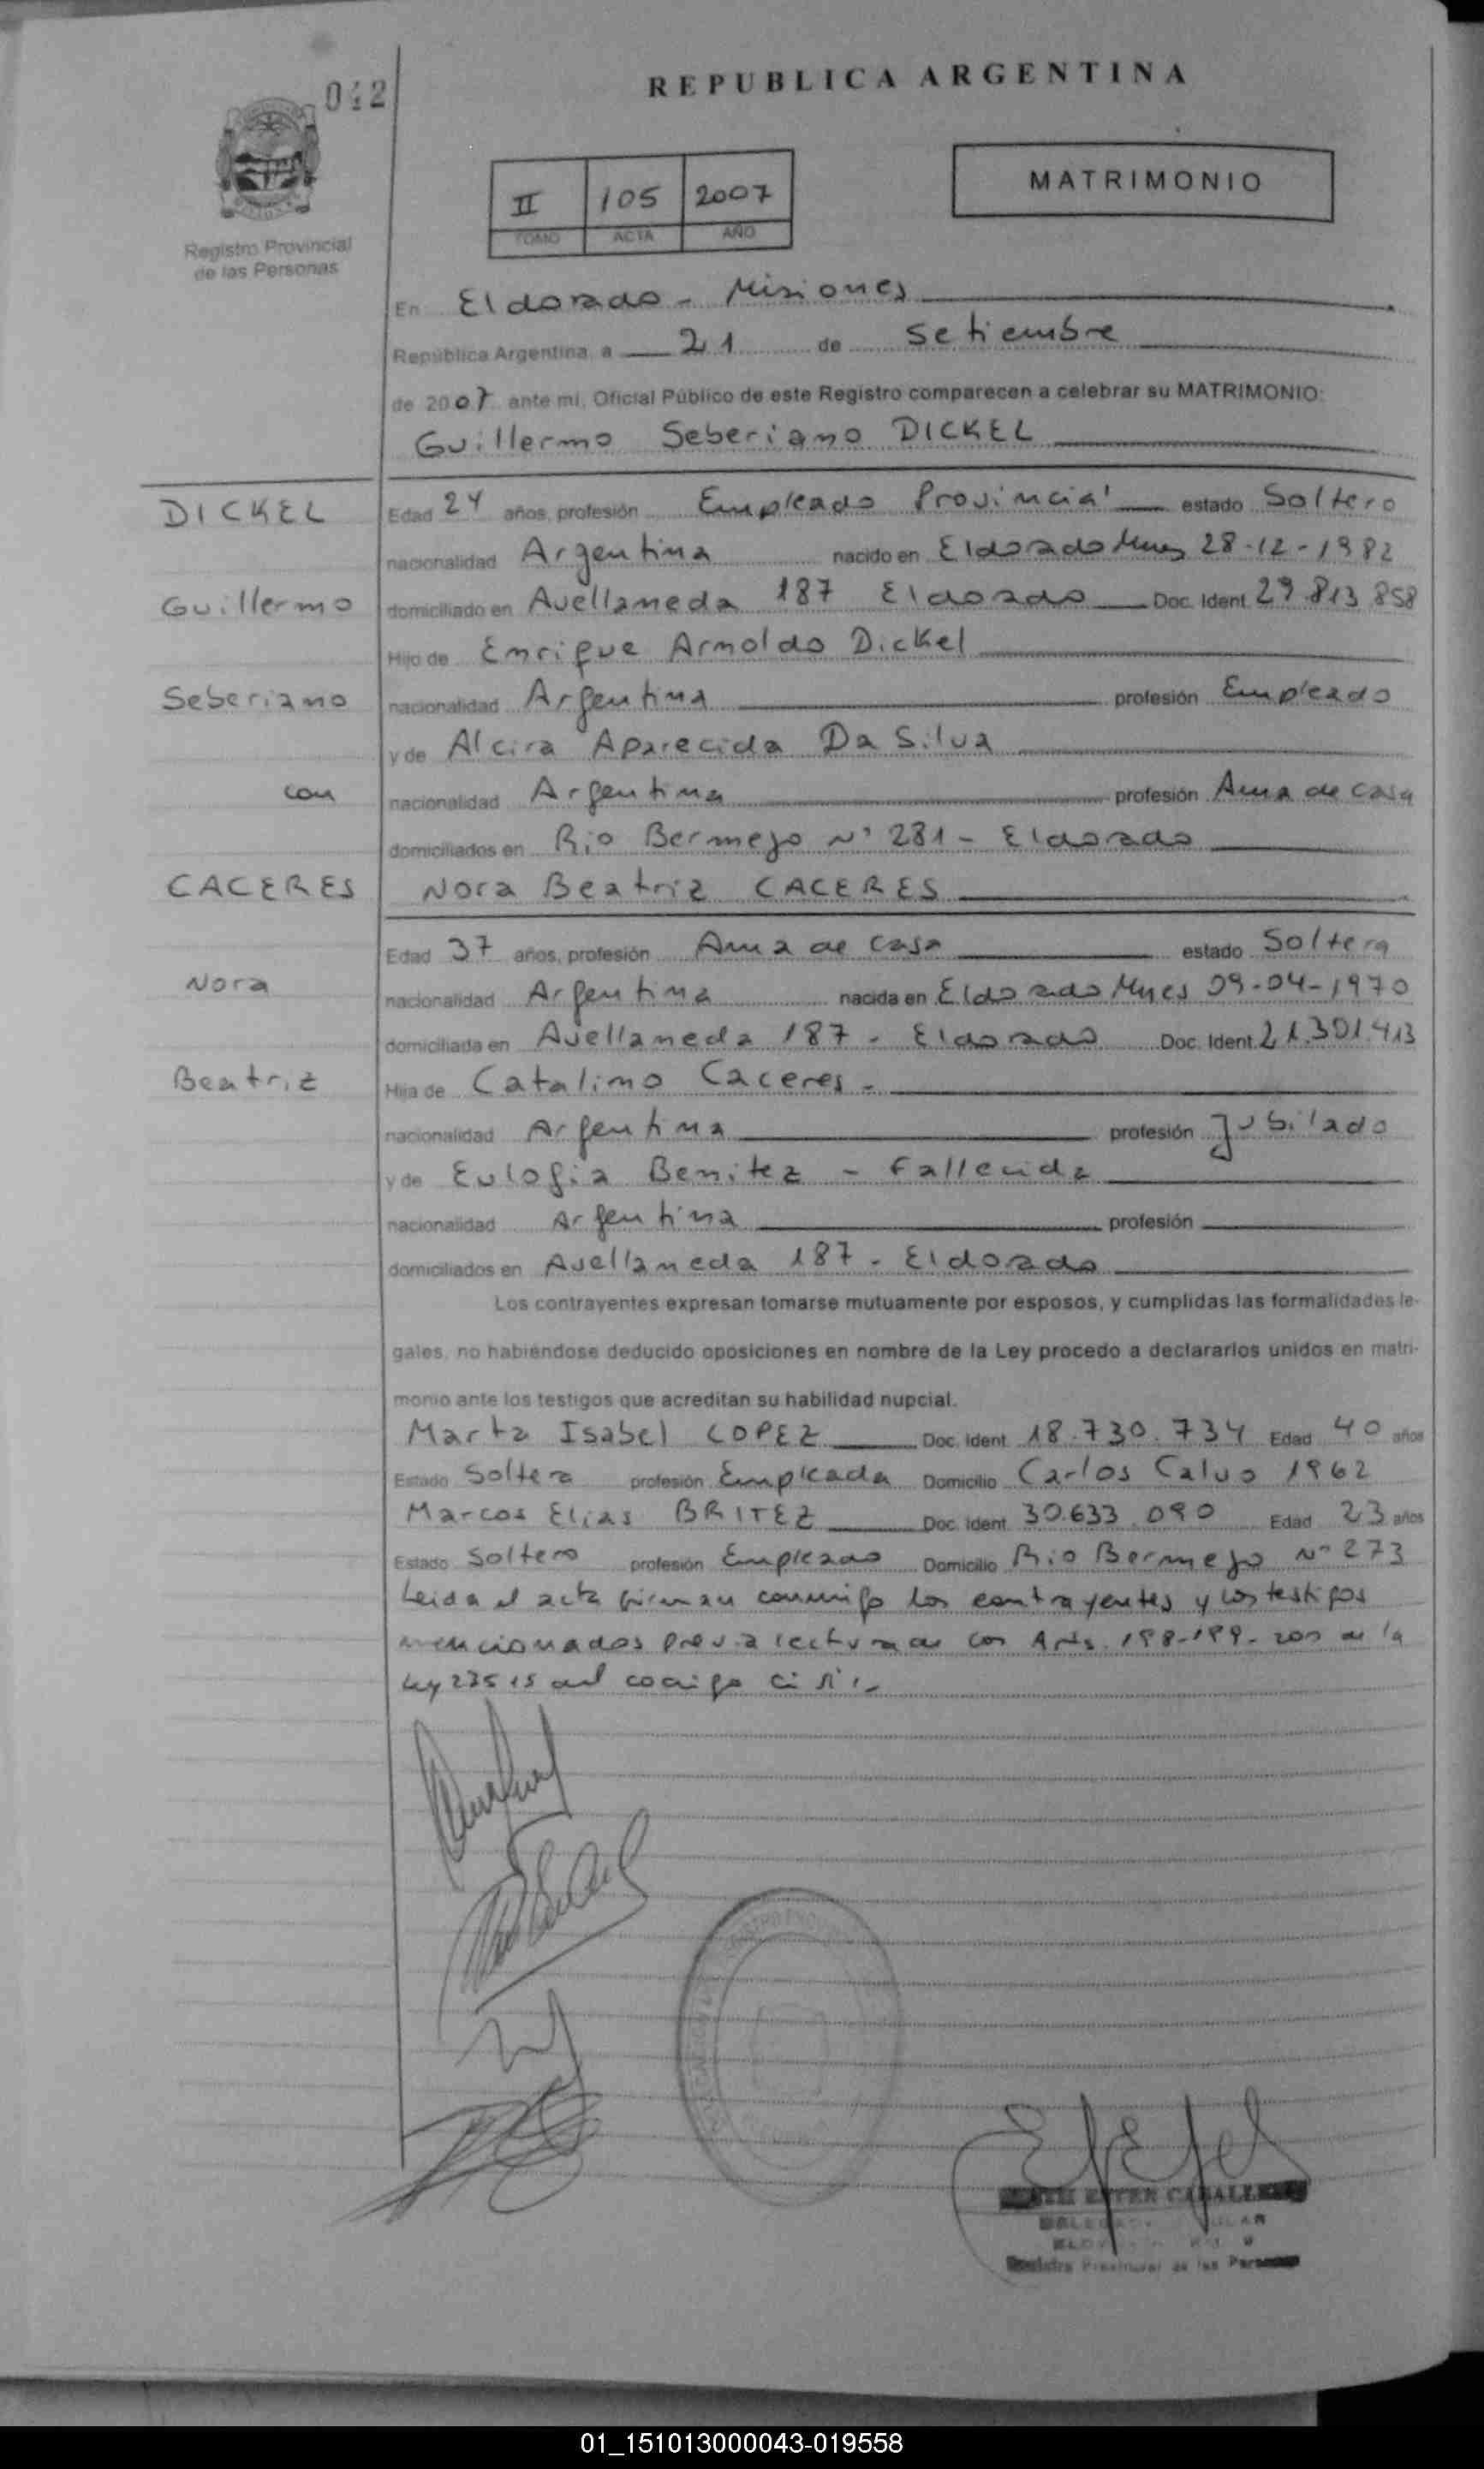 042
REPUBLICA ARGENTINA
II 105 2007
TOMO ACTA AÑO
MATRIMONIO
Registro Provincial
de las Personas
En Eldorado - Misiones
República Argentina, a 21 de Setiembre
de 2007 ante mi, Oficial Público de este Registro comparecen a celebrar su MATRIMONIO:
Guillermo Seberiano DICKEL
DICKEL
Edad 24 años, profesión Empleado Provincial estado Soltero
nacionalidad Argentina nacido en Eldorado Mnes 28-12-1982
Guillermo
domiciliado en Avellaneda 187 Eldorado Doc. Ident. 29.813.858
Hijo de Enrique Arnoldo Dickel
Seberiano
nacionalidad Argentina profesión Empleado
y de Alcira Aparecida Da Silva
con
nacionalidad Argentina profesión Ama de casa
domiciliados en Rio Bermejo Nº 281 - Eldorado
CACERES
Nora Beatriz CACERES
Edad 37 años, profesión Ama de casa estado Soltera
Nora
nacionalidad Argentina nacida en Eldorado Mnes 09-04-1970
domiciliada en Avellaneda 187 - Eldorado Doc. Ident. 21.301.413
Beatriz
Hija de Catalino Caceres -
nacionalidad Argentina profesión Jubilado
y de Eulogia Benitez - Fallecida
nacionalidad Argentina profesión
domiciliados en Avellaneda 187 - Eldorado
Los contrayentes expresan tomarse mutuamente por esposos, y cumplidas las formalidades le-
gales, no habiéndose deducido oposiciones en nombre de la Ley procedo a declararlos unidos en matri-
monio ante los testigos que acreditan su habilidad nupcial.
Marta Isabel LOPEZ Doc. Ident. 18.730.734 Edad 40 años
Estado Soltera profesión Empleada Domicilio Carlos Calvo 1962
Marcos Elias BRITEZ Doc. Ident. 30.633.090 Edad 23 años
Estado Soltero profesión Empleado Domicilio Rio Bermejo Nº 273
Leida el acta firman conmigo los contrayentes y los testigos
mencionados previa lectura de los Arts. 198-199-200 de la
Ley 23515 del codigo civil.-
ESTER CABALLERO
Registro Provincial de las Personas
01_151013000043-019558